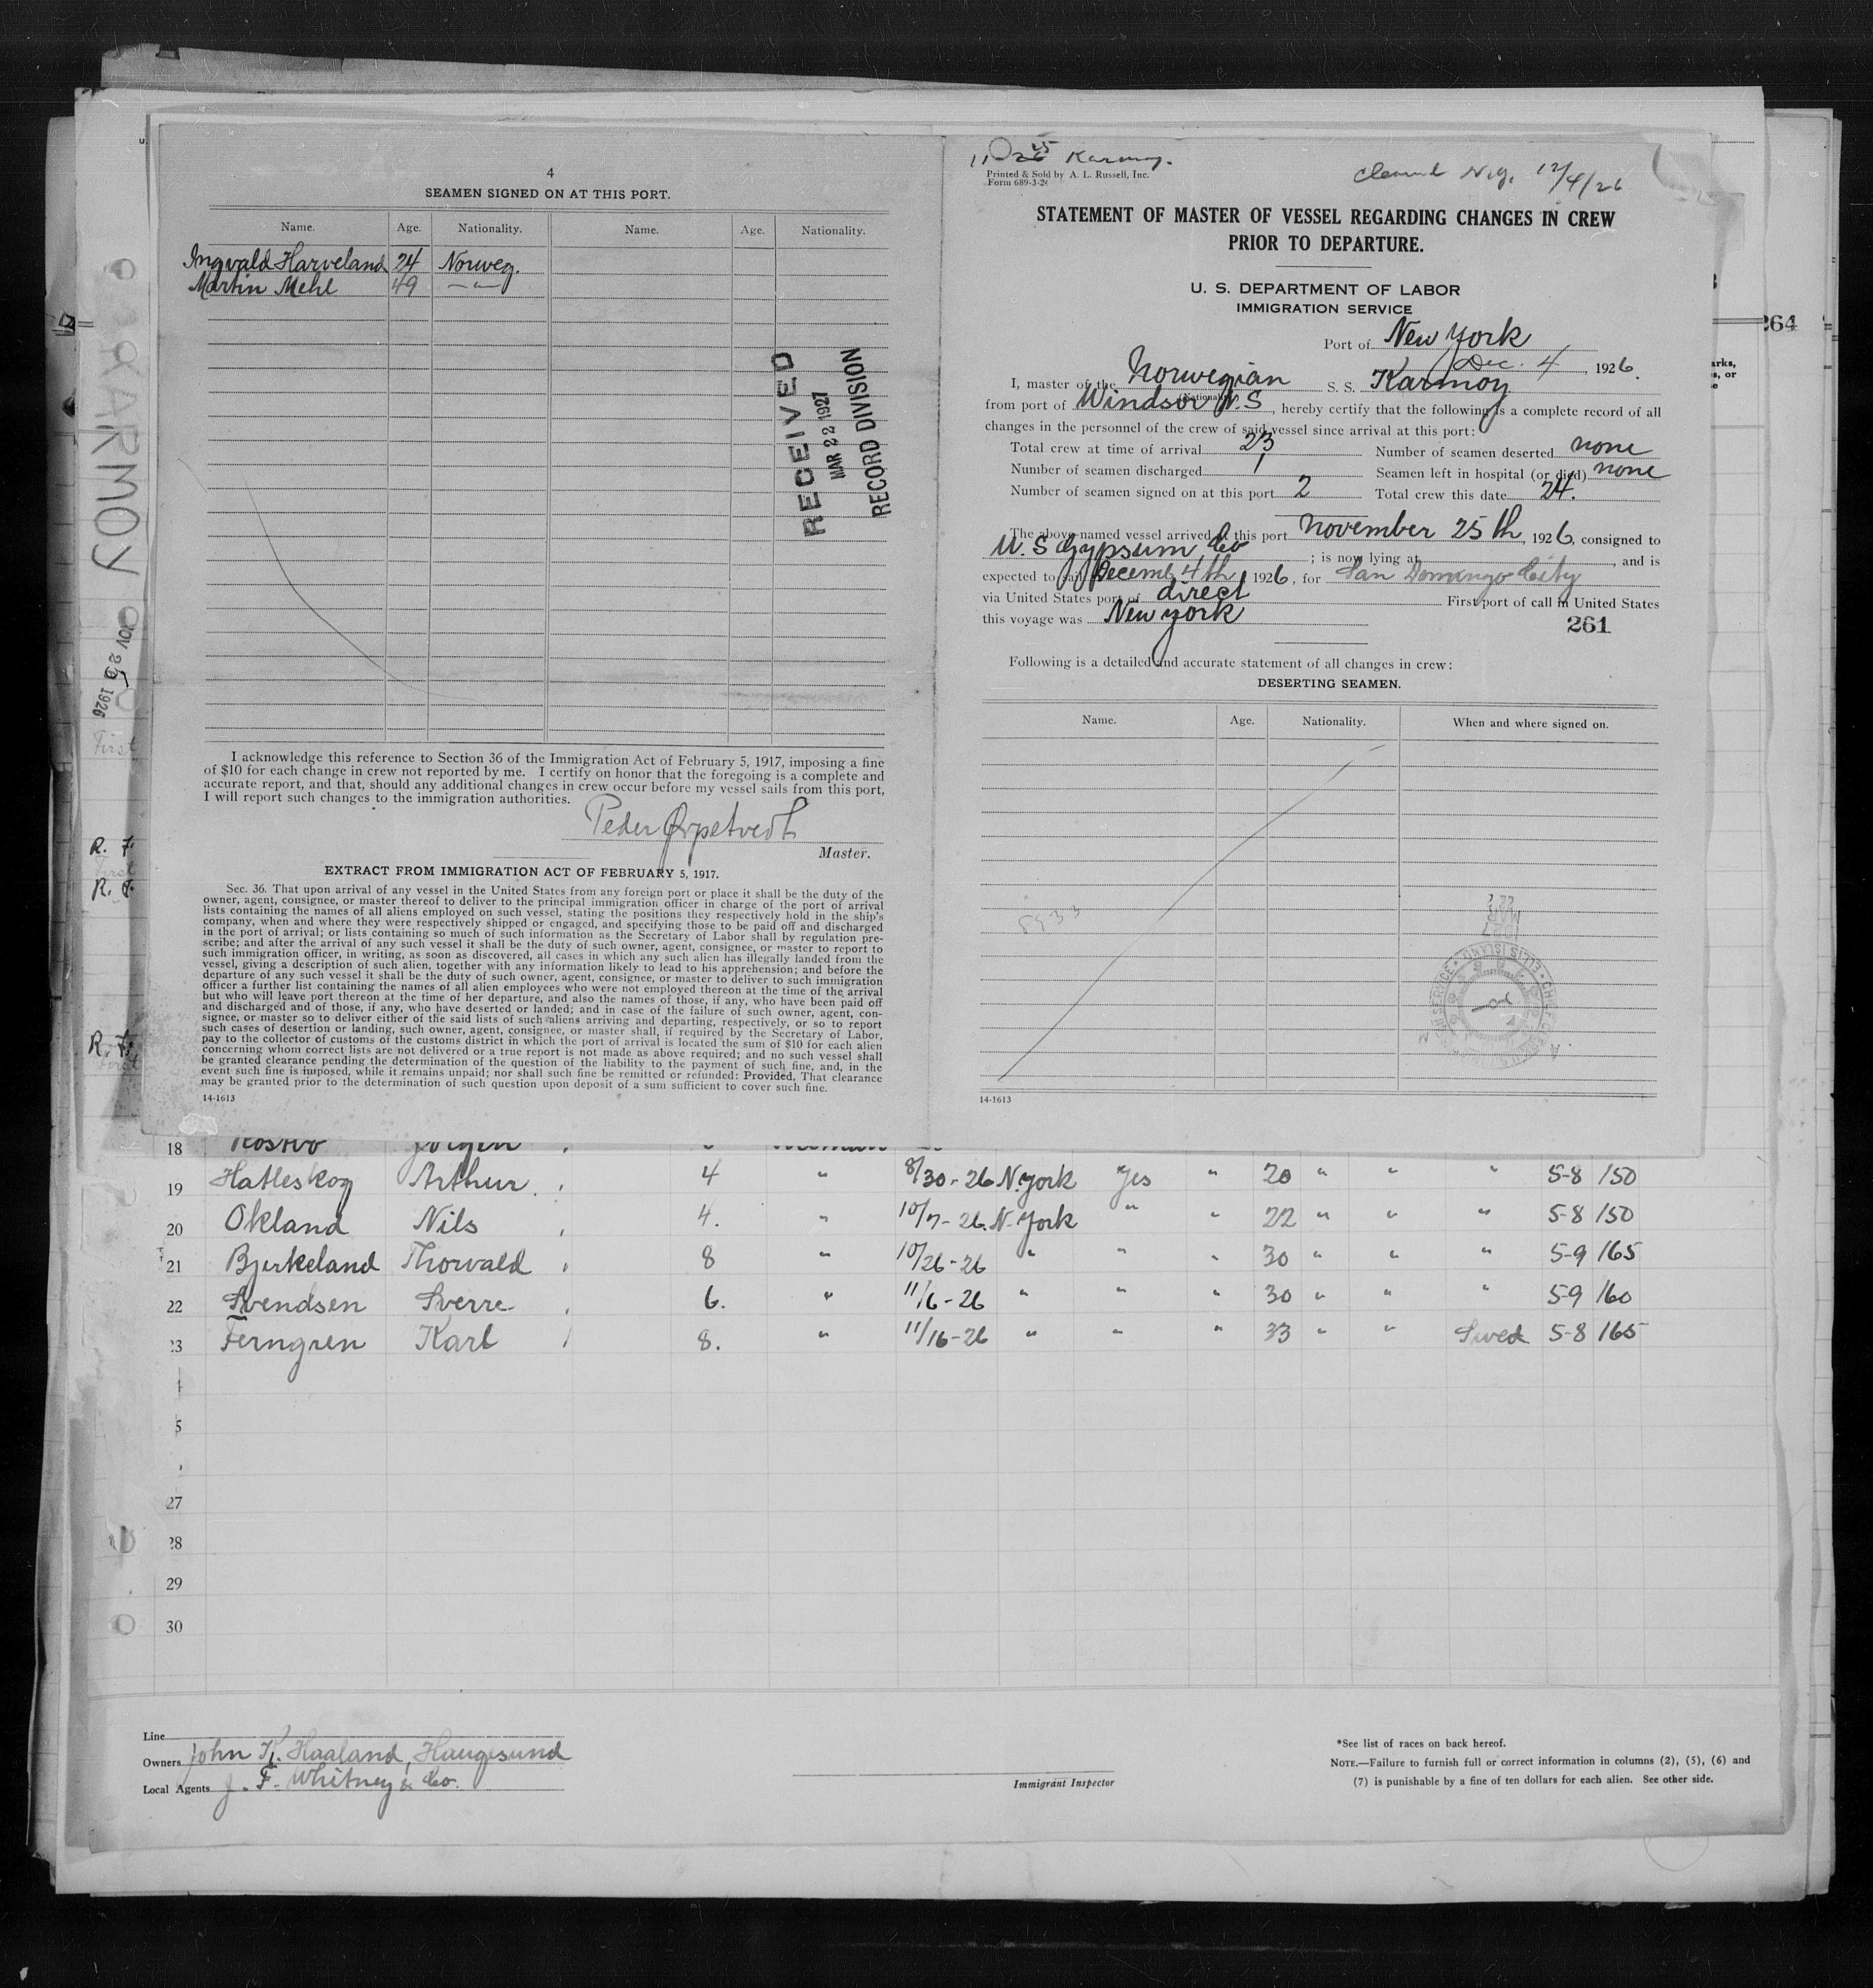 4
SEAMEN SIGNED ON AT THIS PORT.
Name. Age. Nationality. Name. Age. Nationality.
Ingvald Harveland 24 Norweg.
Martin Mehl 49 — " —
RECEIVED
MAR 22 1927
RECORD DIVISION
I acknowledge this reference to Section 36 of the Immigration Act of February 5, 1917, imposing a fine
of $10 for each change in crew not reported by me. I certify on honor that the foregoing is a complete and
accurate report, and that, should any additional changes in crew occur before my vessel sails from this port,
I will report such changes to the immigration authorities.
Peder
Master.
EXTRACT FROM IMMIGRATION ACT OF FEBRUARY 5, 1917.
Sec. 36. That upon arrival of any vessel in the United States from any foreign port or place it shall be the duty of the
owner, agent, consignee, or master thereof to deliver to the principal immigration officer in charge of the port of arrival
lists containing the names of all aliens employed on such vessel, stating the positions they respectively hold in the ship's
company, when and where they were respectively shipped or engaged, and specifying those to be paid off and discharged
in the port of arrival; or lists containing so much of such information as the Secretary of Labor shall by regulation pre-
scribe; and after the arrival of any such vessel it shall be the duty of such owner, agent, consignee, or master to report to
such immigration officer, in writing, as soon as discovered, all cases in which any such alien has illegally landed from the
vessel, giving a description of such alien, together with any information likely to lead to his apprehension; and before the
departure of any such vessel it shall be the duty of such owner, agent, consignee, or master to deliver to such immigration
officer a further list containing the names of all alien employees who were not employed thereon at the time of the arrival
but who will leave port thereon at the time of her departure, and also the names of those, if any, who have been paid off
and discharged and of those, if any, who have deserted or landed; and in case of the failure of such owner, agent, con-
signee, or master so to deliver either of the said lists of such aliens arriving and departing, respectively, or so to report
such cases of desertion or landing, such owner, agent, consignee, or master shall, if required by the Secretary of Labor,
pay to the collector of customs of the customs district in which the port of arrival is located the sum of $10 for each alien
concerning whom correct lists are not delivered or a true report is not made as above required; and no such vessel shall
be granted clearance pending the determination of the question of the liability to the payment of such fine, and, in the
event such fine is imposed, while it remains unpaid; nor shall such fine be remitted or refunded: Provided, That clearance
may be granted prior to the determination of such question upon deposit of a sum sufficient to cover such fine.
14-1613
Karmoy.
Printed & Sold by A. L. Russell, Inc.
Form 689-3-26
12/4/26
STATEMENT OF MASTER OF VESSEL REGARDING CHANGES IN CREW
PRIOR TO DEPARTURE.
U. S. DEPARTMENT OF LABOR
IMMIGRATION SERVICE
Port of New York
Dec. 4, 1926.
I, master of the Norwegian S. S. Karmoy
(Nationality)
from port of Windsor N.S, hereby certify that the following is a complete record of all
changes in the personnel of the crew of said vessel since arrival at this port:
Total crew at time of arrival 23 Number of seamen deserted none
Number of seamen discharged 1 Seamen left in hospital (or died) none
Number of seamen signed on at this port 2 Total crew this date 24.
The above-named vessel arrived at this port november 25th, 1926, consigned to
U. S Gypsum Co; is now lying at , and is
expected to sail Decemb 4th, 1926, for San Domingo City
via United States port of direct First port of call in United States
this voyage was New York
261
Following is a detailed and accurate statement of all changes in crew:
DESERTING SEAMEN.
Name. Age. Nationality. When and where signed on.
14-1613
264
KARMOY
NOV 25 1926
First
R. F.
First
R. F.
R. F.
First
18
19 Hatleskog Arthur 4 " 8/30-26 N.York Yes " 20 " " " 5-8 150
20 Okland Nils 4. " 10/7-26. N-York " " 22 " " " 5-8 150
21 Bjerkeland Thorvald 8 " 10/26-26 " " " 30 " " " 5-9 165
22 Svendsen Sverre 6. " 11/6-26 " " " 30 " " " 5-9 160
23 Ferngren Karl 8. " 11/16-26 " " " 33 " " Swed 5-8 165
27
28
29
30
Line
Owners John K. Haaland, Haugesund
Local Agents J. F. Whitney & Co.
Immigrant Inspector
*See list of races on back hereof.
NOTE.—Failure to furnish full or correct information in columns (2), (5), (6) and
(7) is punishable by a fine of ten dollars for each alien. See other side.